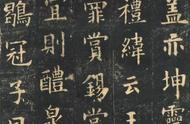 盖亦坤靈
禮緯云王
罪賞錫當
宜則醴泉
鶡冠子曰